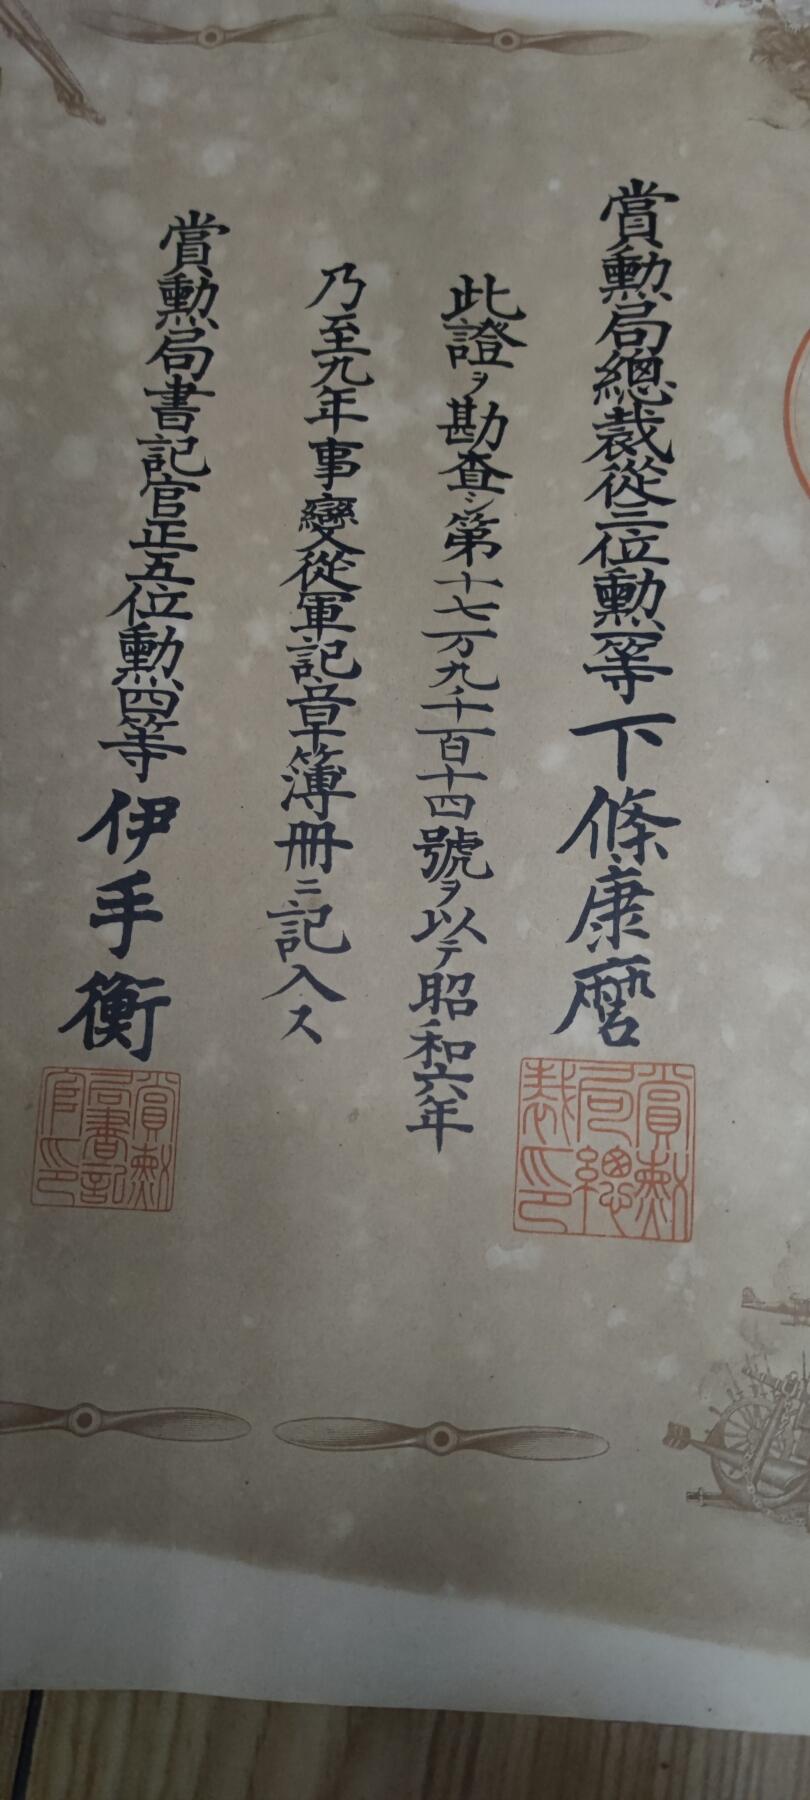 賞勲局總裁從三位勲一等下條康麿
此證ヲ勘査シ第十七万九千百十四號ヲ以テ昭和六年
乃至九年事變從軍記章簿冊ニ記入ス
賞勲局書記官正五位勲四等伊手衡
賞勲局總裁印
賞勲局書記官印